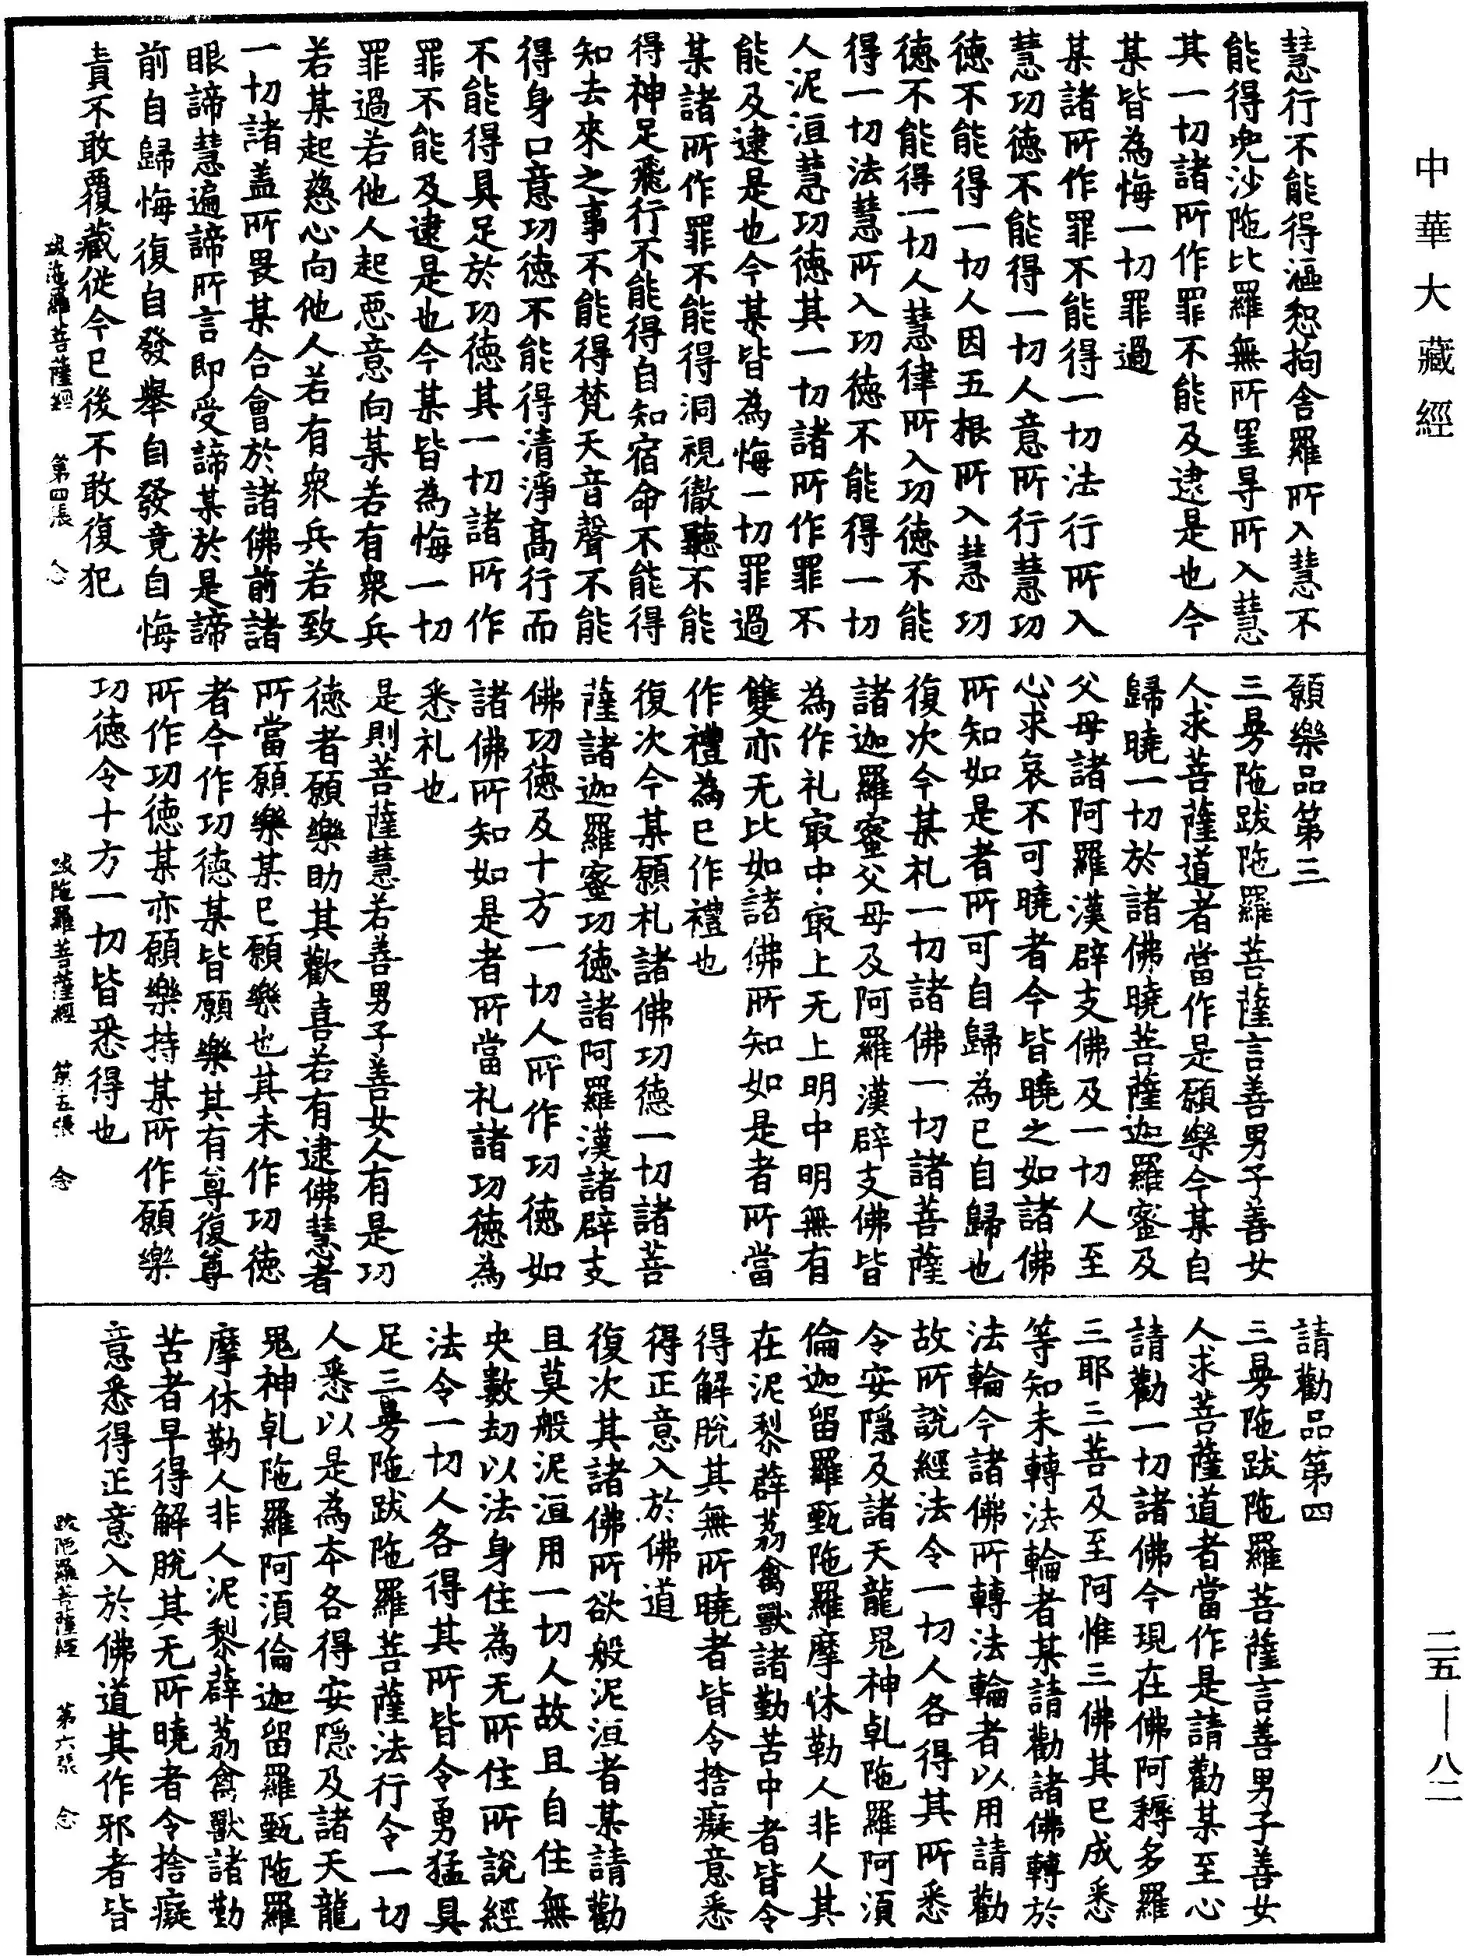 中華大藏經
慧行不能得漚惒拘舍羅所入慧不
能得兜沙陁比羅無所罣导所入慧
其一切諸所作罪不能及逮是也今
某皆為悔一切罪過
某諸所作罪不能得一切法行所入
慧功德不能得一切人意所行慧功
德不能得一切人因五根所入慧功
德不能得一切人慧律所入功德不能
得一切法慧所入功德不能得一切
人泥洹慧功德其一切諸所作罪不
能及逮是也今某皆為悔一切罪過
某諸所作罪不能得洞視徹聽不能
得神足飛行不能得自知宿命不能得
知去來之事不能得梵天音聲不能
得身口意功德不能得清淨高行而
不能得具足於功德其一切諸所作
罪不能及逮是也今某皆為悔一切
罪過若他人起惡意向某若有衆兵
若某起慈心向他人若有衆兵若致
一切諸盖所畏某合會於諸佛前諸
眼諦慧遍諦所言即受諦某於是諦
前自歸悔復自發舉自發竟自悔
責不敢覆藏從今已後不敢復犯
跋陁羅菩薩經 第四張 念
願樂品第三
三曼陁跋陁羅菩薩言善男子善女
人求菩薩道者當作是願樂今某自
歸曉一切於諸佛曉菩薩迦羅蜜及
父母諸阿羅漢辟支佛及一切人至
心求哀不可曉者今皆曉之如諸佛
所知如是者所可自歸為已自歸也
復次今某礼一切諸佛一切諸菩薩
諸迦羅蜜父母及阿羅漢辟支佛皆
為作礼㝡中㝡上无上明中明無有
雙亦无比如諸佛所知如是者所當
作禮為已作禮也
復次今某願礼諸佛功德一切諸菩
薩諸迦羅蜜功德諸阿羅漢諸辟支
佛功德及十方一切人所作功德如
諸佛所知如是者所當礼諸功德為
悉礼也
是則菩薩慧若善男子善女人有是功
德者願樂助其歡喜若有逮佛慧者
所當願樂某已願樂也其未作功德
者今作功德某皆願樂其有尊復尊
所作功德某亦願樂持某所作願樂
功德令十方一切皆悉得也
跋陁羅菩薩經 第五張 念
請勸品第四
三曼陁跋陁羅菩薩言善男子善女
人求菩薩道者當作是請勸某至心
請勸一切諸佛今現在佛阿耨多羅
三耶三菩及至阿惟三佛其已成悉
等知未轉法輪者某請勸諸佛轉於
法輪令諸佛所轉法輪者以用請勸
故所說經法令一切人各得其所悉
令安隱及諸天龍鬼神乹陁羅阿須
倫迦留羅甄陁羅摩休勒人非人其
在泥犁薜荔禽獸諸勤苦中者皆令
得解脫其無所曉者皆令捨癡意悉
得正意入於佛道
復次其諸佛所欲般泥洹者某請勸
且莫般泥洹用一切人故且自住無
央數劫以法身住為无所住所說經
法令一切人各得其所皆令勇猛具
足三曼陁跋陁羅菩薩法行令一切
人悉以是為本各得安隱及諸天龍
鬼神乹陁羅阿須倫迦留羅甄陁羅
摩休勒人非人泥犁薜荔禽獸諸勤
苦者早得解脫其无所曉者令捨癡
意悉得正意入於佛道其作邪者皆
跋陁羅菩薩經 第六張 念
二五—八二